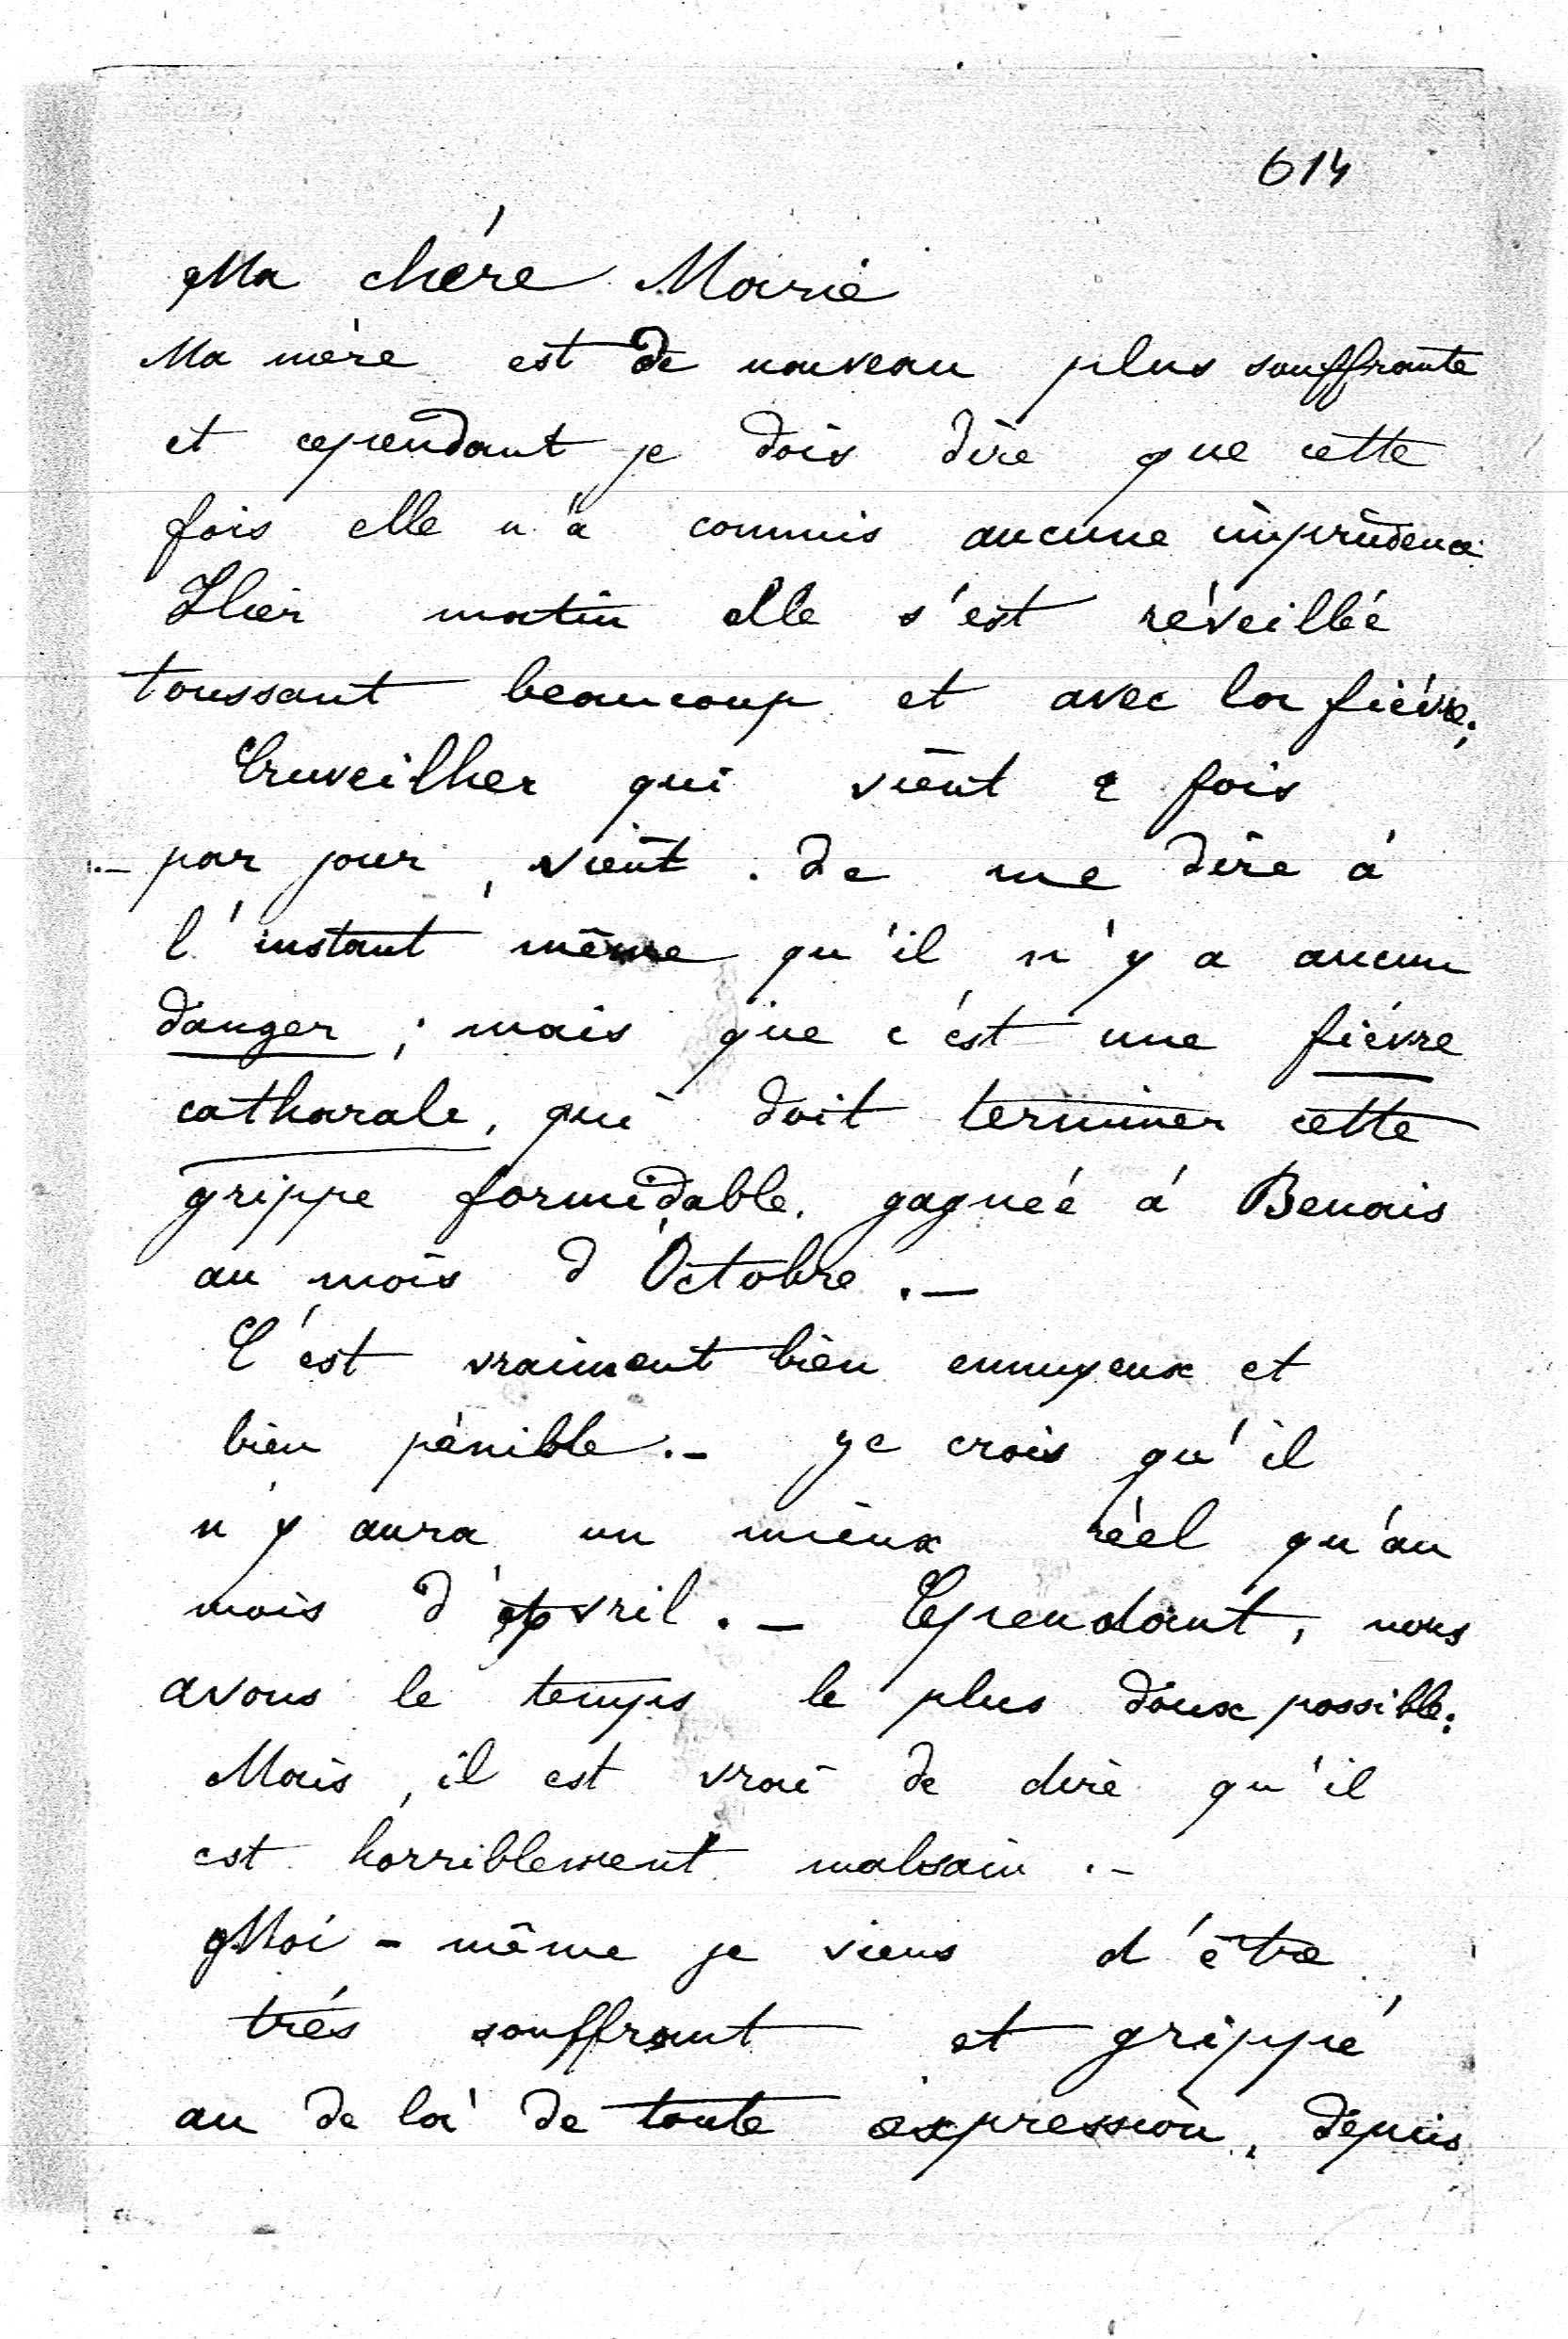 614
Ma chère Marie
Ma mère est de nouveau plus souffrante
et cependant je dois dire que cette
fois elle n'a commis aucune imprudence
Hier matin elle s'est réveillée
toussant beaucoup et avec la fièvre;
Cruveilher qui vient 2 fois
par jour, vient de me dire à
l'instant même qu'il n'y a aucun
danger; mais que c'est une fièvre
catharale, qui doit terminer cette
grippe formidable, gagnée à Benais
au mois d'Octobre.—
C'est vraiment bien ennuyeux et
bien pénible.— Je crois qu'il
n'y aura un mieux réel qu'au
mois d'avril.— Cependant, nous
avons le temps le plus doux possible;
Mais, il est vrai de dire qu'il
est horriblement malsain.—
Moi-même je viens d'être
très souffrant et grippé
au de là de toute expression, depuis